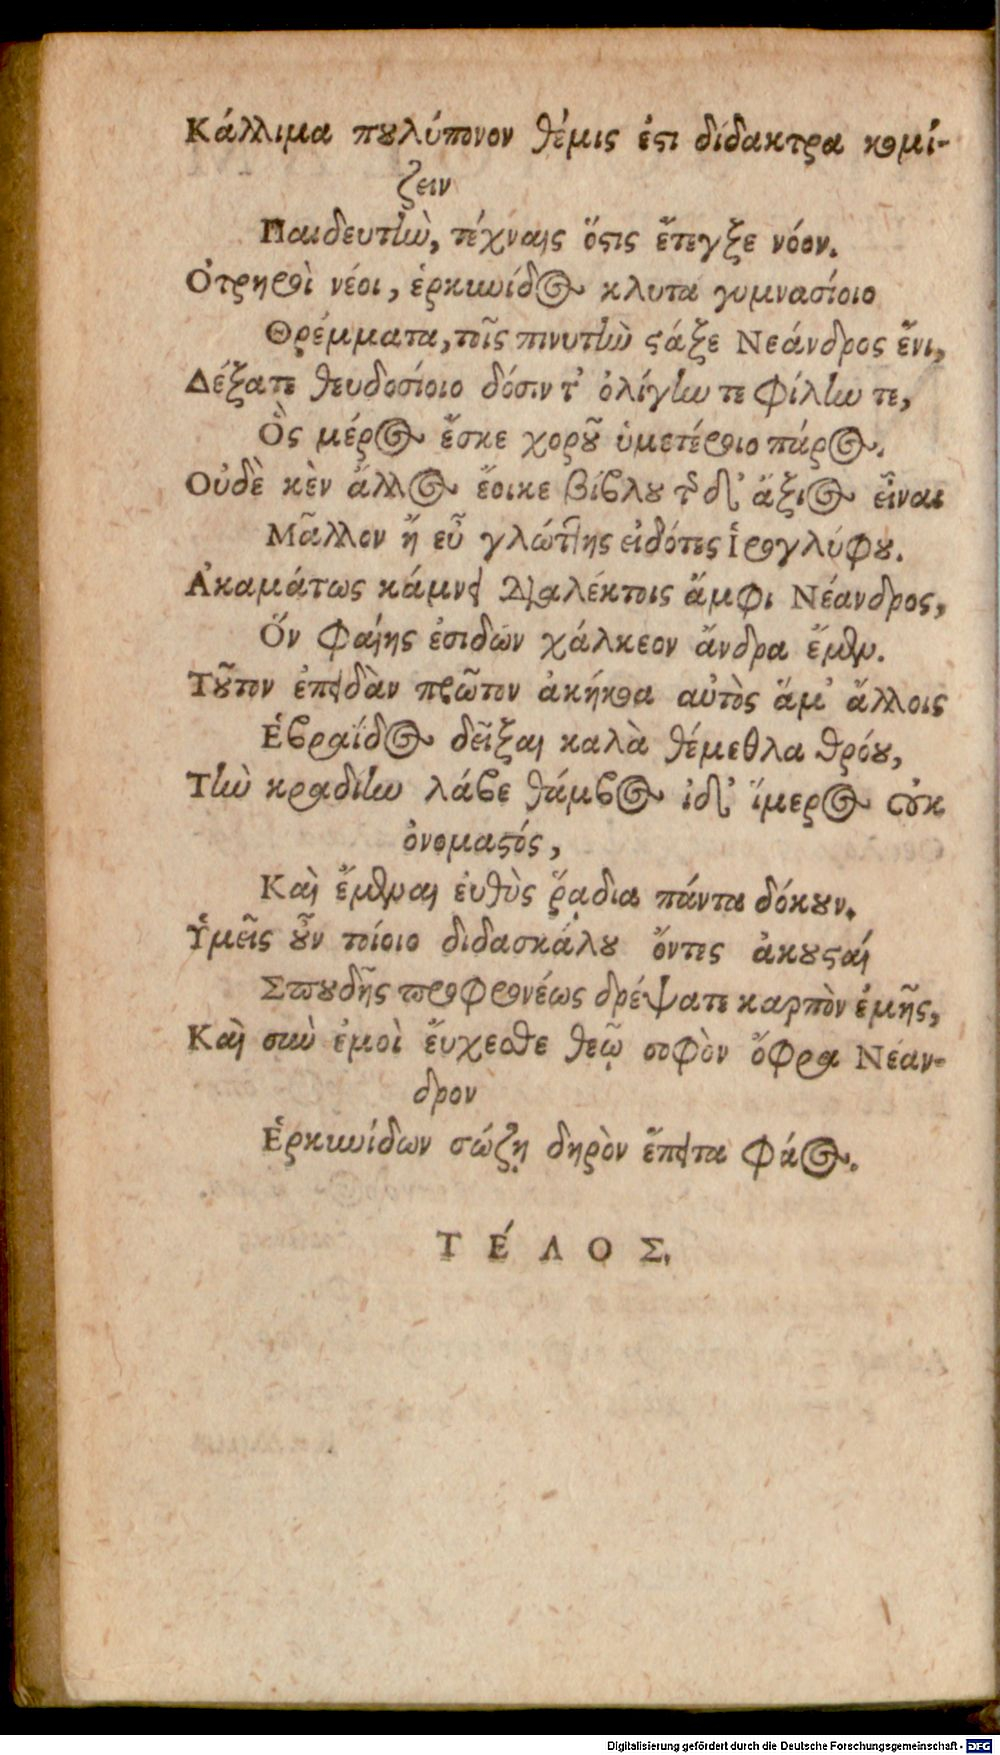 Κάλλιμα πουλύπονον θέμις ἐστι δίδακτρα κομί-
ζειν
Παιδευτὴν, τέχναις ὅστις ἔτεγξε νόον.
Ὀτρηροὶ νέοι, ἑρκυνίδος κλυτα γυμνασίοιο
Θρέμματα, τοῖς πινυτὴν στάξε Νεάνδρος ἔνι,
Δέξατε θευδοσίοιο δόσιν τ' ὀλίγην τε φίλην τε,
Ὃς μέρος ἔσκε χοροῦ ὑμετέροιο πάρος.
Οὐδὲ κὲν ἄλλος ἔοικε βίβλου τῆδ' ἄξιος εἶναι
Μᾶλλον ἤ εὖ γλώττης εἰδότες ἱρογλύφου.
Ἀκαμάτως κάμνει διαλέκτοις ἄμφι Νέανδρος,
Ὅν φαίης ἐσιδών χάλκεον ἄνδρα ἔμεν.
Τοῦτον ἐπειδὰν πρῶτον ἀκήκοα αὐτὸς ἅμ' ἄλλοις
Ἑβραΐδος δεῖξαι καλὰ θέμεθλα θρόου,
Τὴν κραδίην λάβε θάμβος ἰδ' ἵμερος οὐκ
ὀνομαστός,
Καὶ ἔμεναι ἐυθὺς ῥᾴδια πάντα δόκουν.
Ὑμεῖς οὖν τοίοιο διδασκάλου ὄντες ἀκουσταί
Σπουδῆς προφρονέως δρέψατε καρπὸν ἐμῆς,
Καὶ σὺν ἐμοὶ ἔυχεσθε θεῷ σοφὸν ὄφρα Νέαν-
δρον
Ἑρκυνίδων σώζῃ δηρὸν ἔπειτα φάος.
ΤΈΛΟΣ.
Digitalisierung gefördert durch die Deutsche Forschungsgemeinschaft - DFG